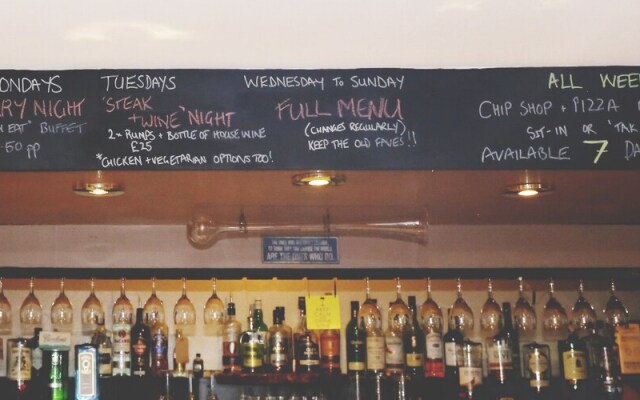 ONDAYS
RY NIGHT
EAT" BUFFET
.50 PP
TUESDAYS
"STEAK
+ WINE" NIGHT
2 x RUMPS + BOTTLE OF HOUSE WINE
£25
*CHICKEN + VEGETARIAN OPTIONS TOO!
WEDNESDAY TO SUNDAY
FULL MENU
(CHANGES REGULARLY)
KEEP THE OLD FAVES!!
ALL WEE
CHIP SHOP + PIZZA
SIT-IN OR 'TAK
AVAILABLE 7 DA